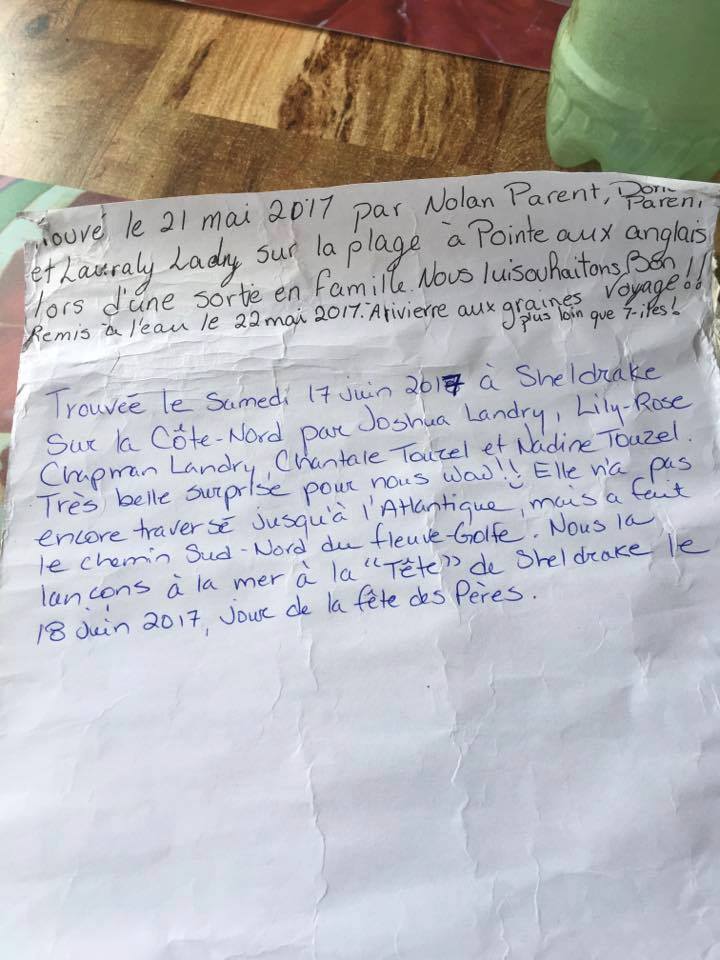 Trouvé le 21 mai 2017 par Nolan Parent, Parent
et Lauraly Ladry sur la plage à Pointe aux anglais
lors d'une sortie en famille. Nous lui souhaitons Bon
voyage!!
Remis à l'eau le 22 mai 2017. A rivierre aux graines
plus loin que 7-iles!
Trouvée le Samedi 17 juin 2017 à Sheldrake
Sur la Côte-Nord par Joshua Landry, Lily-Rose
Chapman Landry, Chantale Touzel et Nadine Touzel.
Très belle surprise pour nous waw!! Elle n'a pas
encore traversé jusqu'à l'Atlantique, mais a fait
le chemin Sud-Nord du fleuve-Golfe. Nous la
lançons à la mer à la "Tête" de Sheldrake le
18 juin 2017, jour de la fête des Pères.